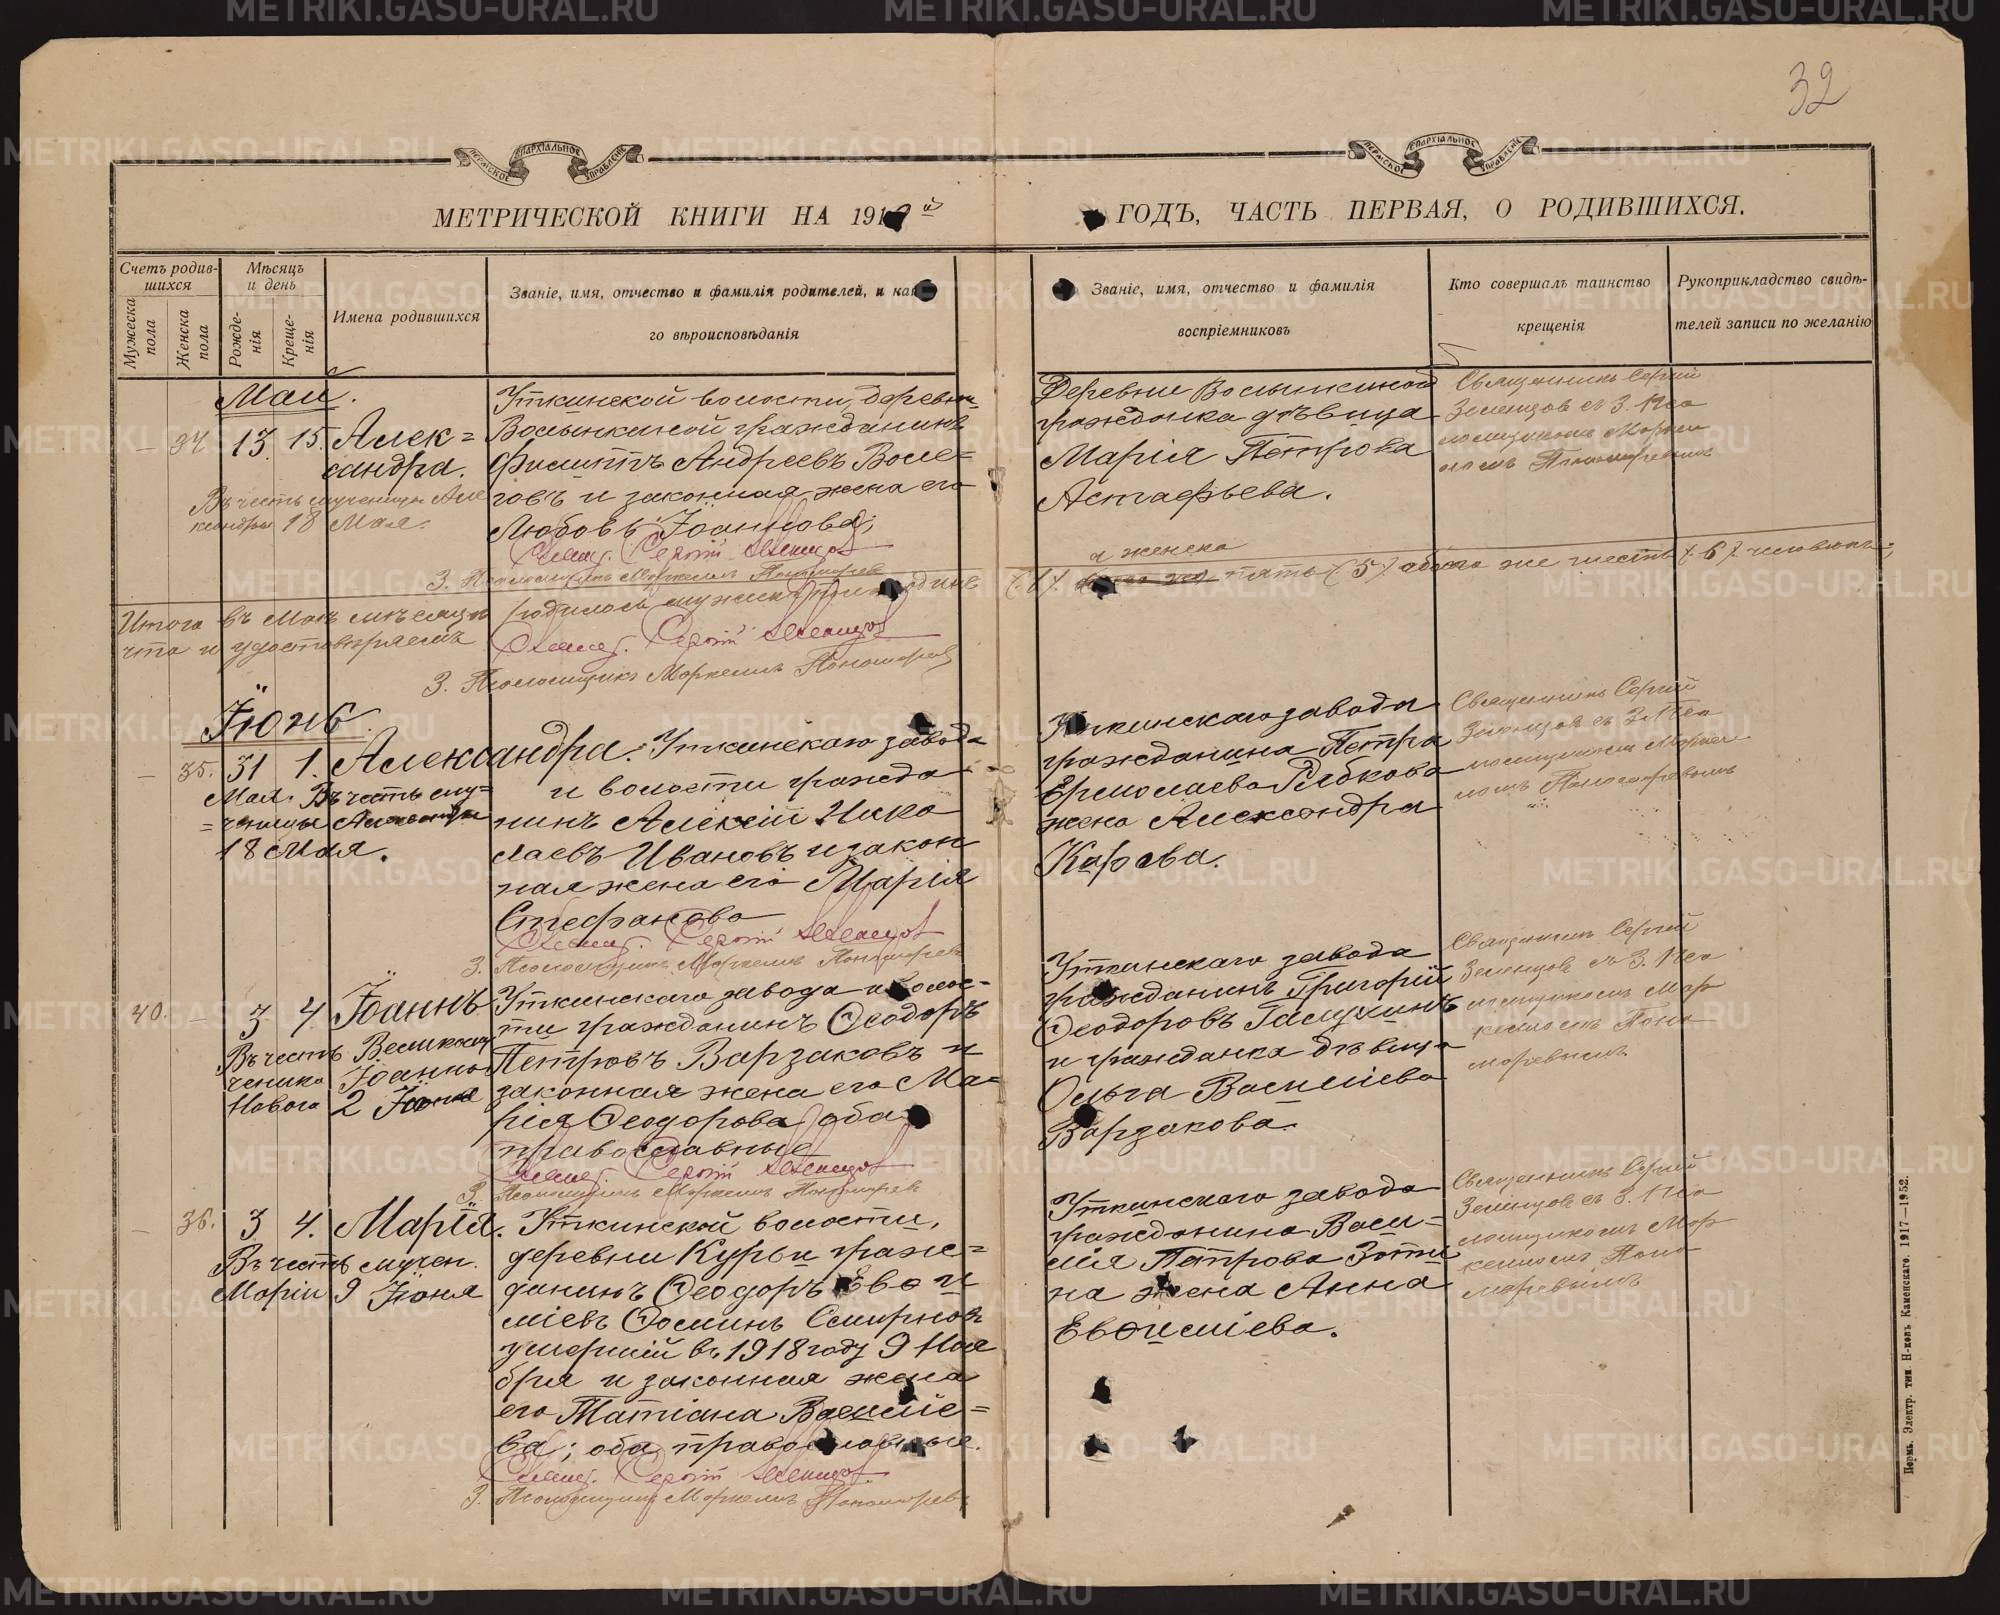 32
ПЕРМСКОЕ ЕПАРХІАЛЬНОЕ УПРАВЛЕНІЕ
ПЕРМСКОЕ ЕПАРХІАЛЬНОЕ УПРАВЛЕНІЕ
МЕТРИЧЕСКОЙ КНИГИ НА 1919й
ГОДЪ, ЧАСТЬ ПЕРВАЯ, О РОДИВШИХСЯ.
Счетъ родив-
шихся
Мужеска
пола
Женска
пола
Мѣсяцъ
и день
Рожде-
нія
Креще-
нія
Имена родившихся
Званіе, имя, отчество и фамилія родителей, и како
го вѣроисповѣданія
Званіе, имя, отчество и фамилія
воспріемниковъ
Кто совершалъ таинство
крещенія
Рукоприкладство свидѣ-
телей записи по желанію
Май.
— 34 13 15 Алек=
сандра.
Въ честь мученицы Але
ксандры 18 Мая.
Уткинской волости, деревни
Волынкиной гражданинъ
Филиппъ Андреевъ Воле=
говъ и законная жена его
Любовь Іоаннова;
Свящ. Сергій Зеленцовъ
З. Псаломщика Маркелъ Пономарев
Деревни Волынкиной
гражданка дѣвица
Марія Петрова
Астафьева.
Священникъ Сергій
Зеленцов съ З. Пса
ломщикомъ Марке
ломъ Пономаревымъ
Итого въ Маѣ мѣсяцѣ родилось мужска одинъ (1). а женска пять (5) обоего же шесть (6) человѣкъ,
что и удостовѣряемъ
Свящ. Сергій Зеленцовъ
З. Псаломщика Маркелъ Пономарев
Іюнь.
— 35. 31 1. Александра.
Мая. Въ честь му=
=ченицы Александры
18 Мая.
Уткинскаго завода
и волости гражда
нинъ Алексій Нико
лаевъ Ивановъ и закон
ная жена его Марія
Стефанова
Свящ. Сергій Зеленцовъ
З. Псаломщика Маркелъ Пономарев
Уткинскаго завода
гражданина Петра
Ермолаева Рябкова
жена Александра
Карова.
Священникъ Сергій
Зеленцов съ З. Пса
ломщикомъ Марке
ломъ Пономаревымъ
40. — 3 4 Іоаннъ
Въ честь Великому
ченика Іоанна
Новаго 2 Іюня
Уткинскаго завода и волос=
ти гражданинъ Ѳеодоръ
Петровъ Варзаковъ и
законная жена его Ма=
рія Ѳеодорова оба
православные
Свящ. Сергій Зеленцовъ
З. Псаломщика Маркелъ Пономарев
Уткинскаго завода
гражданинъ Григорій
Ѳеодоровъ Галухинъ
и гражданка дѣвица
Ольга Василіева
Варзакова.
Священникъ Сергій
Зеленцов съ З. Пса
ломщикомъ Мар
келомъ Поно
маревымъ
— 36. 3 4. Марія.
Въ честь мучен.
Маріи 9 Іюня
Уткинской волости,
деревни Курьи граж=
данинъ Ѳеодоръ Евѳи
міевъ Ѳоминъ Смирновъ
умершій въ 1918 году 9 Ноя
бря и законная жена
его Татіана Василіе=
ва; оба православные.
Свящ. Сергій Зеленцовъ
З. Псаломщика Маркелъ Пономарев
Уткинскаго завода
гражданина Васи=
лія Петрова Зоти
на жена Анна
Евѳиміева.
Священникъ Сергій
Зеленцов съ З. Пса
ломщикомъ Мар
келомъ Поно
маревымъ
Пермь. Электр. тип. Н-ковъ Каменскаго. 1917—1952.
METRIKI.GASO-URAL.RU